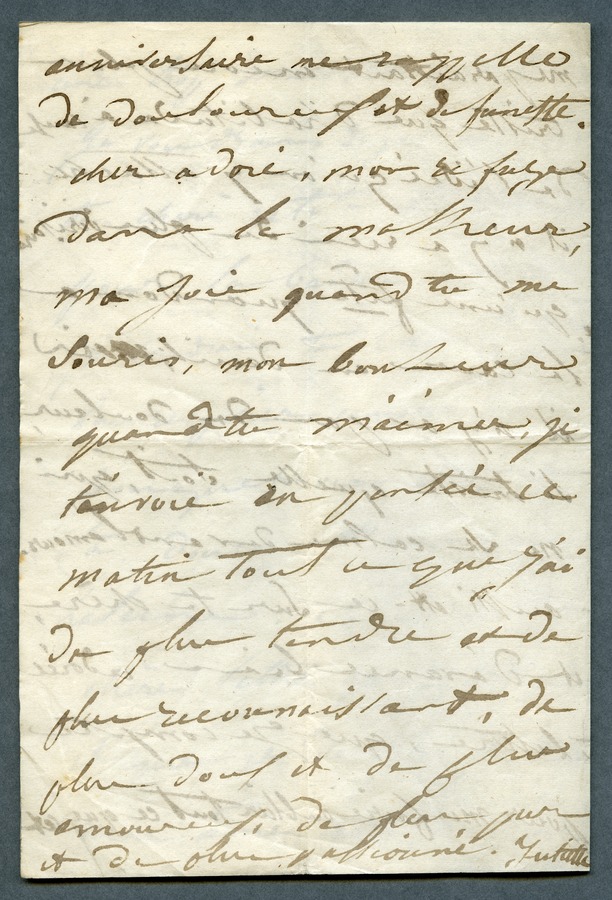 anniversaire me rappelle
de douloureux et de funeste.
cher adoré, mon refuge
dans le malheur,
ma joie quand tu me
souris, mon bonheur
quand tu m'aimes, je
t'envoie en pensée ce
matin tout ce que j'ai
de plus tendre et de
plus reconnaissant, de
plus doux et de plus
amoureux, de plus pur
et de plus passionné. Juliette